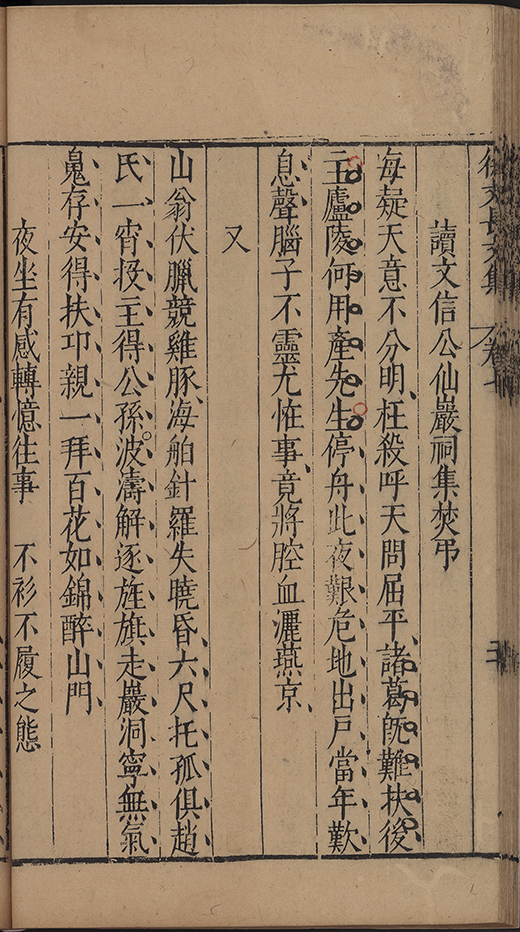 徐文長文集 卷七
讀文信公仙巖祠集焚弔
每疑天意不分明枉殺呼天問屈平諸葛旣難扶後
主廬陵何用產先生停舟此夜艱危地出戶當年歎
息聲腦子不靈尤恠事竟將腔血灑燕京
又
山翁伏臘競雞豚海舶針羅失曉昏六尺托孤俱趙
氏一宵投主得公孫波濤解逐旌旗走巖洞寧無氣
䰟存安得扶卭親一拜百花如錦醉山門
夜坐有感轉憶往事 不衫不履之態